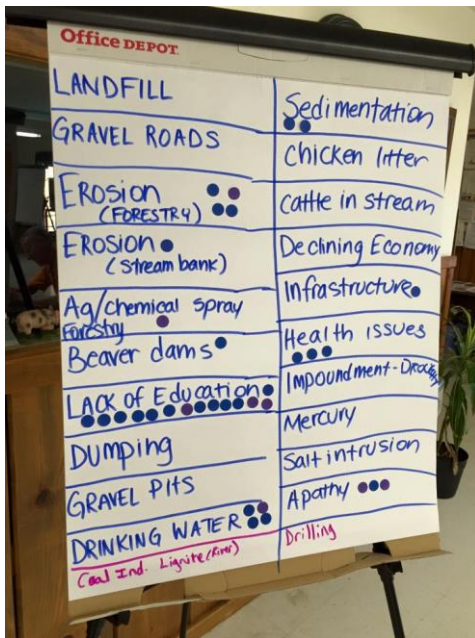 Office DEPOT
LANDFILL
GRAVEL ROADS
EROSION
(FORESTRY)
EROSION
(Stream bank)
Ag/chemical spray
Forestry
Beaver dams
LACK of Education
Dumping
GRAVEL PITS
DRINKING WATER
Coal Ind. Lignite (River)
Sedimentation
Chicken litter
Cattle in stream
Declining Economy
Infrastructure
Health issues
Impoundment -
Mercury
Salt intrusion
Apathy
Drilling